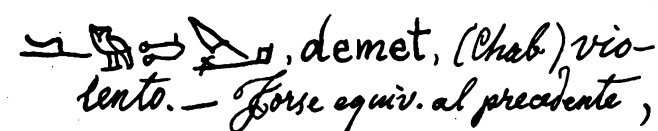 , demet, (Chab) vio-
lento. — Forse equiv. al precedente,